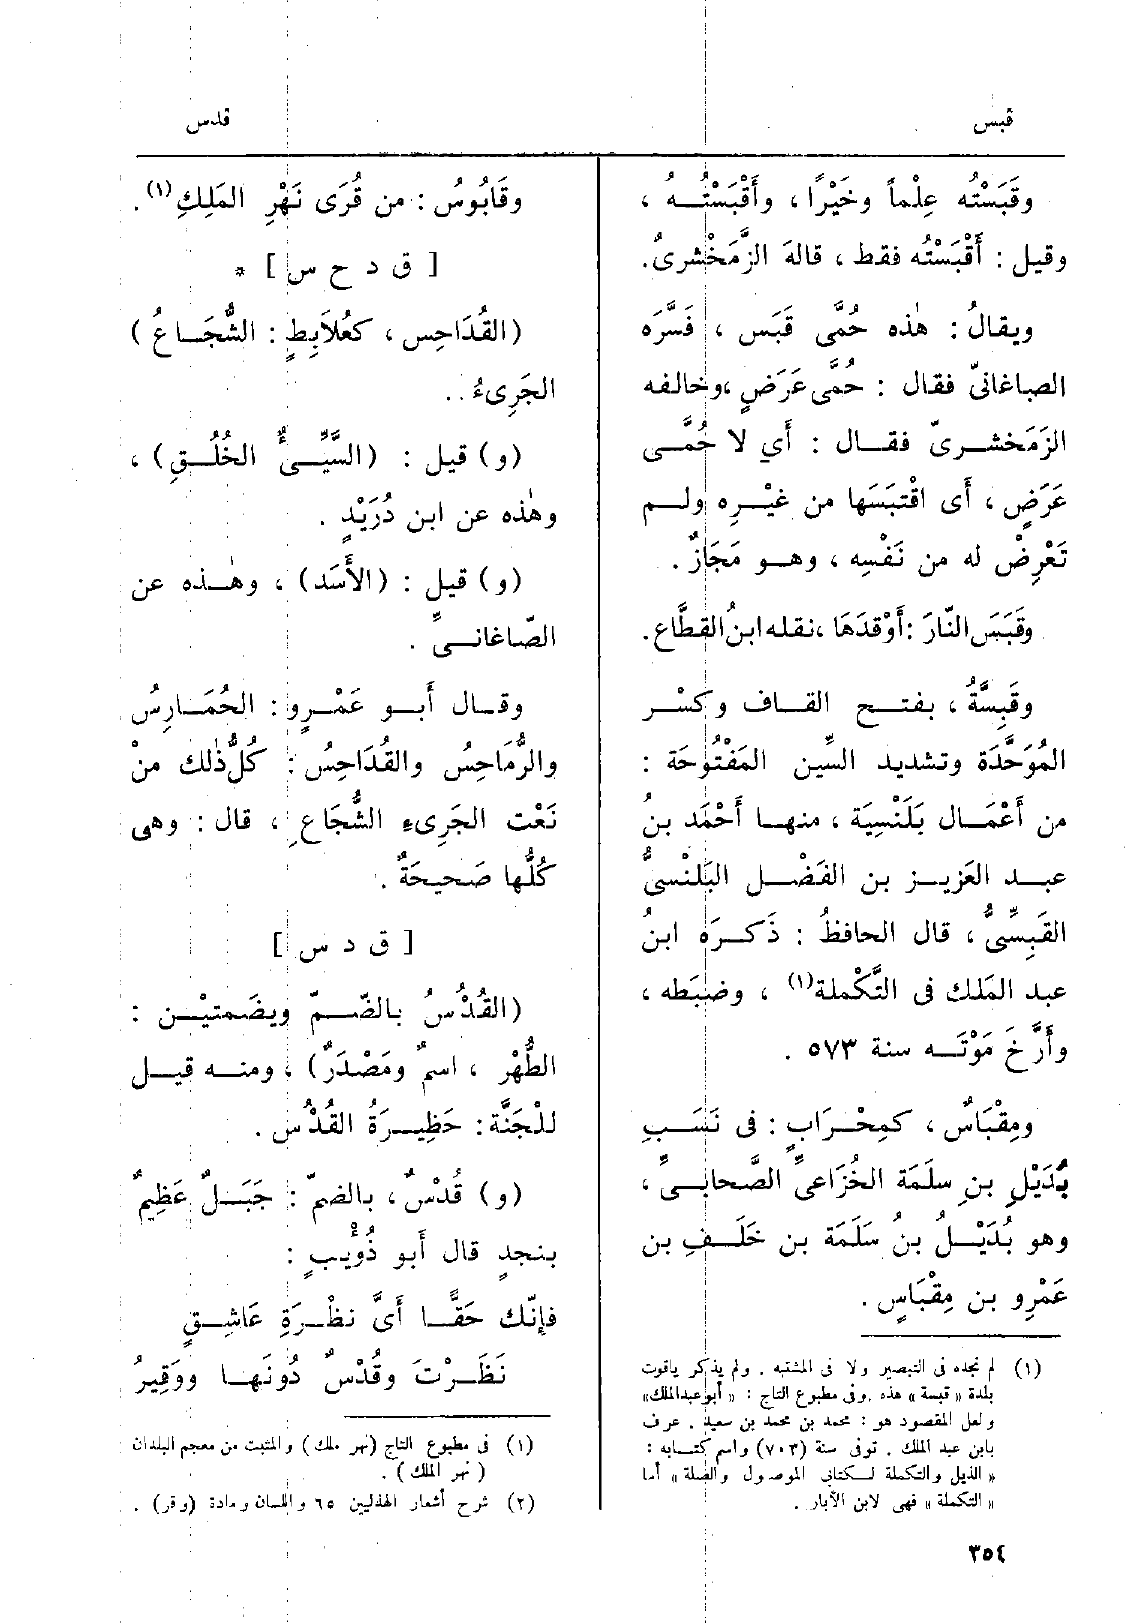 قبس
قدس
وقَبَسْتُه عِلْماً وخَيْرًا ، وأَقْبَسْتُــه ،
وقيل : أَقْبَسْتُه فقط ، قالَه الزَّمَخْشرىُّ.
ويقالُ : هٰذه حُمَّى قَبَس ، فَسَّرَه
الصاغانىّ فقال : حُمَّى عَرَضٍ ،وخالفه
الزَمَخشــرىّ فقــال : أَي لا حُمَّــى
عَرَضٍ ، أَى اقْتبَسَها من غيْــرِه ولــم
تَعْرِضْ له من نَفْسِه ، وهــو مَجَازٌ .
وقَبَسَ النّارَ :أَوْقدَهَا ،نقله ابنُ القطَّاع.
وقَبِسَّةُ ، بفتــح القــاف وكسْــر
المُوَحَّدَة وتشديد السِّين المَفْتُوحَة :
من أَعْمَــال بَلَنْسِيَة ، منهــا أَحْمَد بنُ
عبــد العَزيــز بن الفَضْــل البَلَنْسىُّ
القَبِسِّىُّ ، قال الحافظُ : ذَكــرَه ابنُ
عبد المَلك فى التَّكْملة(١) ، وضبَطه ،
وأَرَّخَ مَوْتَــه سنة ٥٧٣ .
ومِقْبَاسٌ ، كمِحْــرَابٍ : فى نَسَــبِ
بُدَيْلِ بنِ سلَمَة الخُزَاعىِّ الصَّحابــىِّ ،
وهو بُدَيْــلُ بنُ سَلَمَة بن خَلَــفِ بن
عَمْرِو بن مِقْبَاسٍ .
(١) لم نجده فى التبصير ولا فى المشتبه . ولم يذكر ياقوت
بلدة « قبسة » هذه .وفى مطبوع التاج : « أبو عبدالملك»
ولعل المقصود هو : محمد بن محمد بن سعيد . عرف
بابن عبد الملك . توفى سنة (٧٠٣) واسم كتــابه :
« الذيل والتكملة لــكتابى الموصول والصلة » أما
« التكملة » فهى لابن الأبار .
وقَابُوسُ : من قُرَى نَهْرِ المَلِكِ(١).
[ ق د ح س ] *
(القُدَاحِس ، كعُلَابِطٍ : الشُّجَــاعُ )
الجَرِىءُ . .
(و) قيل : (السَّيِّــىُّ الخُلُــقِ) ،
وهٰذه عن ابن دُرَيْدٍ .
(و) قيل : (الأَسَد) ، وهٰــذه عن
الصّاغانــىِّ .
وقــال أَبــو عَمْــرٍو : الحُمَــارِسُ
والرُّمَاحِسُ والقُدَاحِسُ : كلُّ ذٰلك منْ
نَعْت الجَرِىءِ الشُّجَاعِ ، قال : وهى
كُلُّها صَحيحَةٌ .
[ ق د س ]
(القُدْسُ بالضّــمّ وبضَمتيْــن :
الطُّهْر ، اسمٌ ومَصْدَرٌ) ، ومنــه قيــل
للْجَنَّة : حَظِيــرَةُ القُدْسِ .
(و) قُدْسٌ ، بالضمّ : جَبَــلٌ عَظِيمٌ
بنجدٍ قال أَبو ذُؤَيــبٍ :
فإِنّك حَقًّــا أَىَّ نظْــرَةِ عَاشِــقٍ
نَظَــرْتَ وقُدْسٌ دُونَهــا ووَقِيرُ
(١) فى مطبوع التاج (نهر ملك) والمثبت من معجم البلدان
( نهر الملك ) .
(٢) شرح أشعار الهذليين ٦٥ واللسان ومادة (وقر) .
٣٥٤